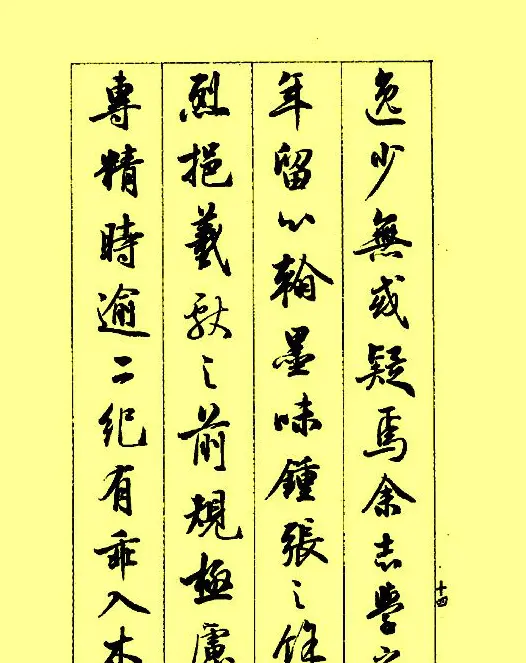 逸少無或疑焉余志學之
年留心翰墨味鍾張之餘
烈挹羲獻之前規極慮
專精時逾二紀有乖入木
十四